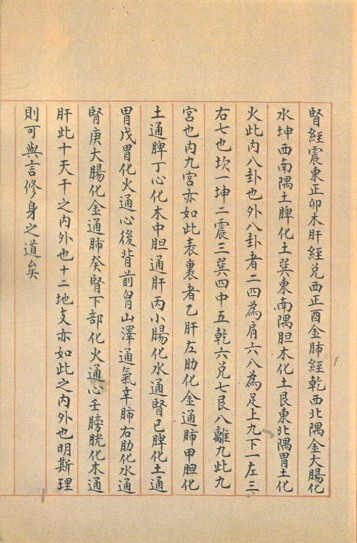 腎經震東正卯木肝經兌西正酉金肺經乾西北隅金大腸化
水坤西南隅土脾化土巽東南隅胆木化土艮東北隅胃土化
火此内八卦也外八卦者二四為肩六八為足上九下一左三
右七也坎一坤二震三巽四中五乾六兌七艮八離九此九
宮也内九宮亦如此表裏者乙肝左肋化金通肺甲胆化
土通脾丁心化木中胆通肝丙小腸化水通腎己脾化土通
胃戊胃化火通心後背前胷山澤通氣辛肺右肋化水通
腎庚大腸化金通肺癸腎下部化火通心壬膀胱化木通
肝此十天干之内外也十二地支亦如此之内外也明斯理
則可與言修身之道矣